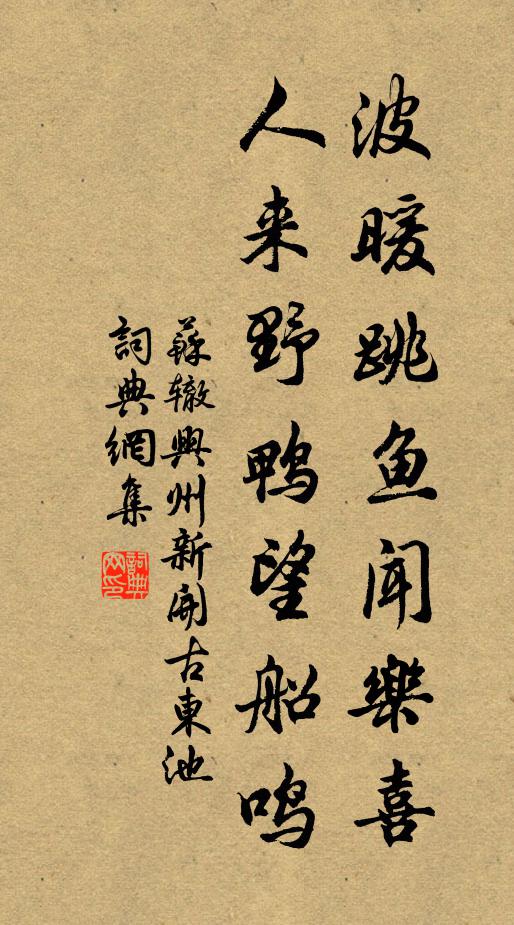 波暖跳鱼闻樂喜
人来野鸭望船鸣
蘇辙興州新開古東池
詞典網集
詞典网印